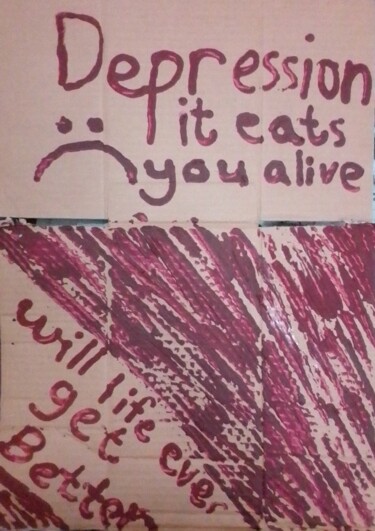 Depression
it eats
you alive
will life ever
get
Better